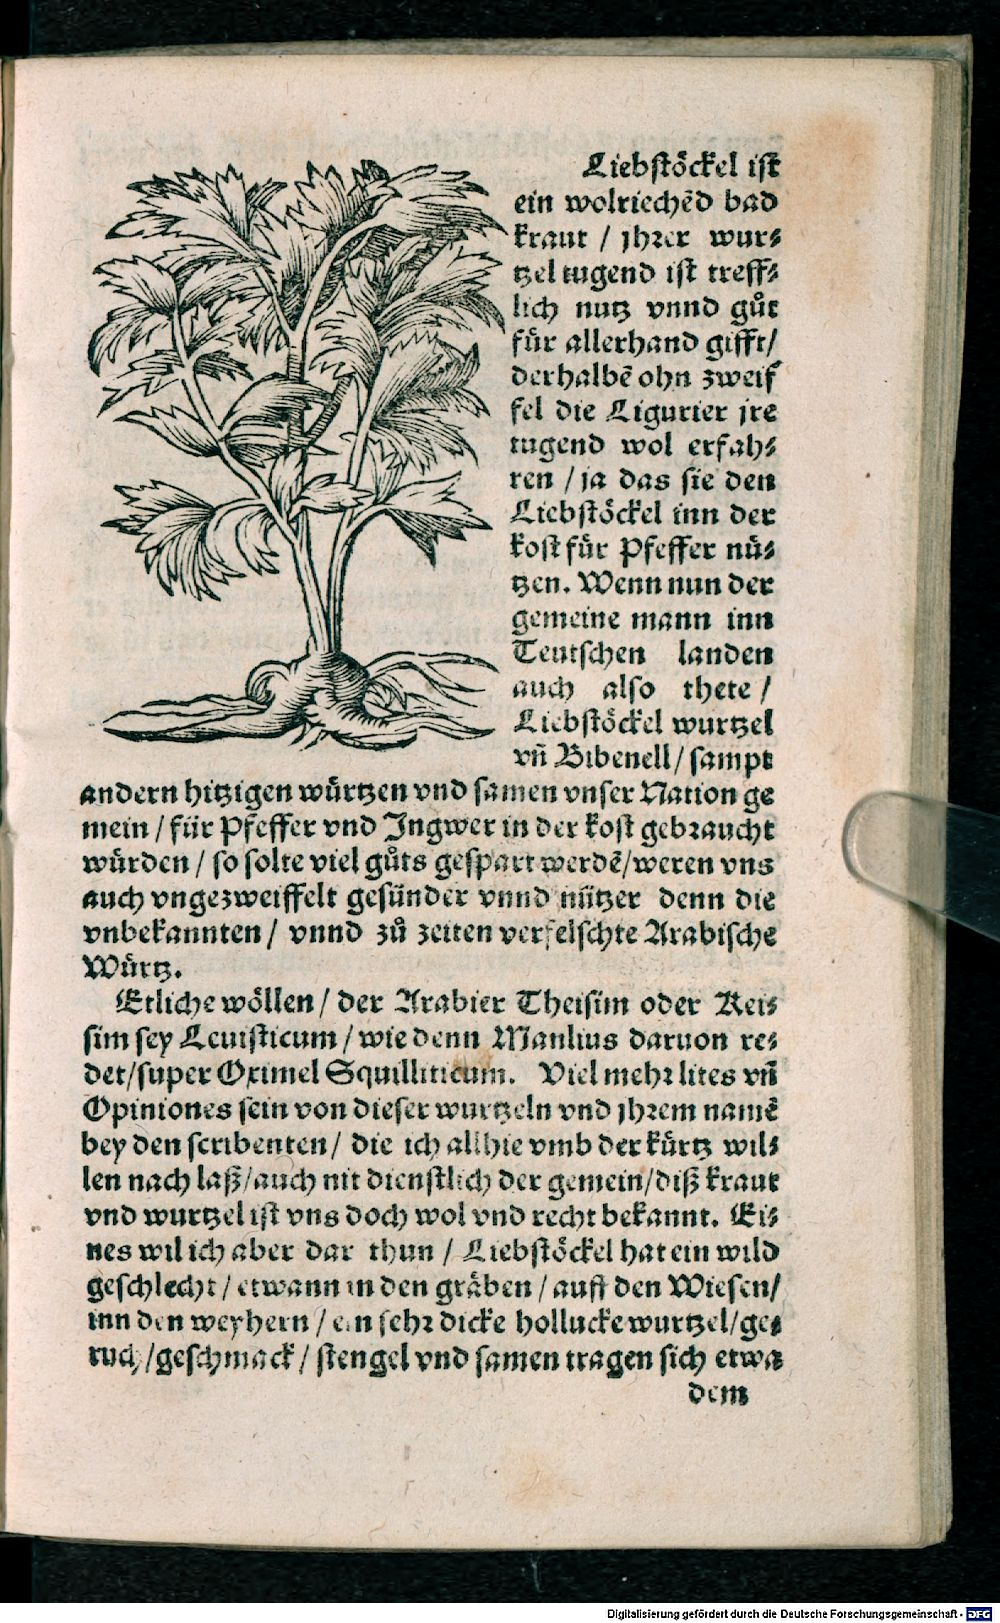 Liebstöckel ist
ein wolriechẽd bad
kraut / jhrer wur⸗
tzel tugend ist treff⸗
lich nutz vnnd gůt
für allerhand gifft/
derhalbẽ ohn zweif
fel die Ligurier jre
tugend wol erfah⸗
ren / ja das sie den
Liebstöckel inn der
kost für Pfeffer nü⸗
tzen. Wenn nun der
gemeine mann inn
Teutschen landen
auch also thete /
Liebstöckel wurtzel
vñ Bibenell / sampt
andern hitzigen würtzen vnd samen vnser Nation ge
mein / für Pfeffer vnd Ingwer in der kost gebraucht
würden / so solte viel gůts gespart werdẽ/weren vns
auch vngezweiffelt gesünder vnnd nützer denn die
vnbekannten / vnnd zů zeiten verfelschte Arabische
Würtz.
Etliche wöllen / der Arabier Theisim oder Kei⸗
sim sey Leuisticum / wie denn Manlius daruon re⸗
det/super Oximel Squilliticum. Viel mehr lites vñ
Opiniones sein von dieser wurtzeln vnd jhrem namẽ
bey den scribenten / die ich allhie vmb der kürtz wil⸗
len nach laß/auch nit dienstlich der gemein/diß kraut
vnd wurtzel ist vns doch wol vnd recht bekannt. Ei⸗
nes wil ich aber dar thun / Liebstöckel hat ein wild
geschlecht / etwann in den gräben / auff den Wiesen/
inn den weyhern / ein sehr dicke hollucke wurtzel/ge⸗
ruch/geschmack / stengel vnd samen tragen sich etwa
dem
Digitalisierung gefördert durch die Deutsche Forschungsgemeinschaft - DFG